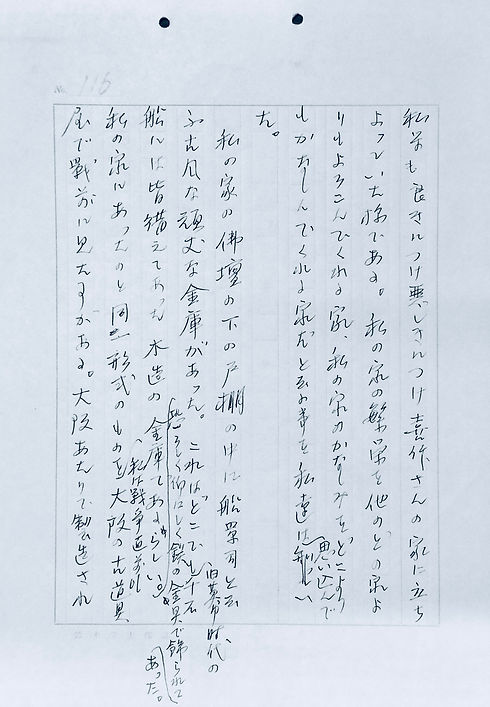 No. 116
私等も良きにつけ悪しきにつけ喜作さんの家に立ち
よっていた様である。私の家の繁栄を他のどの家よ
りもよろこんでくれる家、私の家のかなしみをどこより
もかなしんでくれる家だと云う事を私達は思い込んで
た。
私の家の佛壇の下の戸棚の中に船箪司と云
ふ古風な頑丈な金庫があった。これはどこでも千石
旧幕時代の
船には皆備えてあった木造の金庫であるらしい。
恐ろしく仰々しく鉄の金具で飾られて
あった。
私の家にあったのと同一形式のものを大阪の古道具
私は戦争直前に
屋で戦前に見た事がある。大阪あたりで製造され